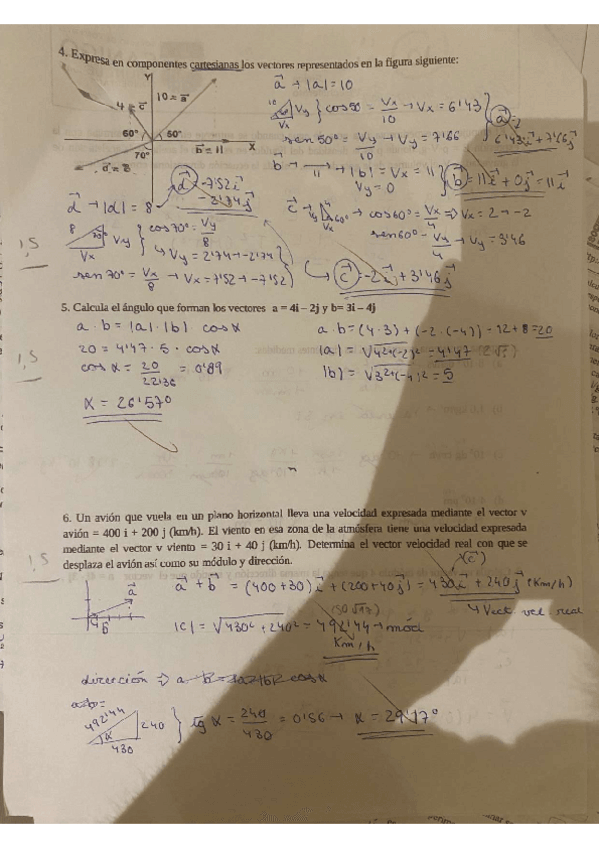 4. Expresa en componentes cartesianas los vectores representados en la figura siguiente:
Y
10 = a⃗
4 = c⃗
60°
50°
70°
b⃗ = 11
X
d⃗ = 8
a⃗ → |a| = 10
10
Vy
Vx
cos 50 = Vx/10 → Vx = 6'43
sen 50° = Vy/10 → Vy = 7'66
a⃗ =
6'43i⃗ + 7'66j⃗
b⃗ → 11 → |b| = Vx = 11
Vy = 0
b⃗ = 11i⃗ + 0j⃗ = 11i⃗
d⃗ → |d| = 8
d⃗ -7'52i⃗
-2'74j⃗
8
70°
Vy
Vx
cos 70° = Vy/8
↳ Vy = 2'74 → -2'74
sen 70° = Vx/8 → Vx = 7'52 → -7'52
c⃗ →
4
60°
Vy
Vx
→ cos 60° = Vx/4 ⇒ Vx = 2 → -2
sen 60° = Vy/4 → Vy = 3'46
c⃗ = -2i⃗ + 3'46j⃗
1,5
5. Calcula el ángulo que forman los vectores a = 4i – 2j y b= 3i – 4j
a · b = |a| · |b| cos α
20 = 4'47 · 5 · cos α
cos α = 20/22'36 = 0'89
α = 26'57°
a · b = (4 · 3) + (-2 · (-4)) = 12 + 8 = 20
|a| = √4²+(-2)² = 4'47 (2√5)
|b| = √3²+(-4)² = 5
1,5
6. Un avión que vuela en un plano horizontal lleva una velocidad expresada mediante el vector v
avión = 400 i + 200 j (km/h). El viento en esa zona de la atmósfera tiene una velocidad expresada
mediante el vector v viento = 30 i + 40 j (km/h). Determina el vector velocidad real con que se
desplaza el avión así como su módulo y dirección.
1,5
a⃗
b⃗
(c⃗)
a⃗ + b⃗ = (400 + 30)i⃗ + (200 + 40)j⃗ = 430i⃗ + 240j⃗ (Km/h)
↳ Vect. vel real
(50√97)
|c| = √430² + 240² = 492'44 → mód
Km/h
dirección ⇒ a · b = |a| · |b| cos α
a · b =
492'44
240
α
430
tg α = 240/430 = 0'56 → α = 29'17°